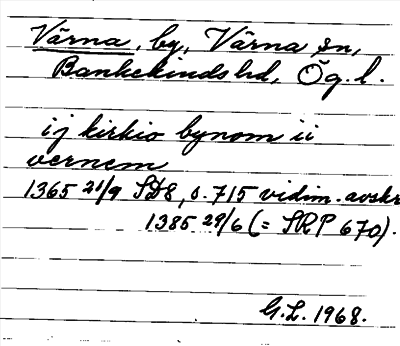 Värna, by, Värna sn,
Bankekinds hd, Ög. l.
ij kirkio bynom ii
vernem
1365 21/9 SD8, s. 715 vidim. avskr
1385 29/6 (= SRP 670).
G.L. 1968.